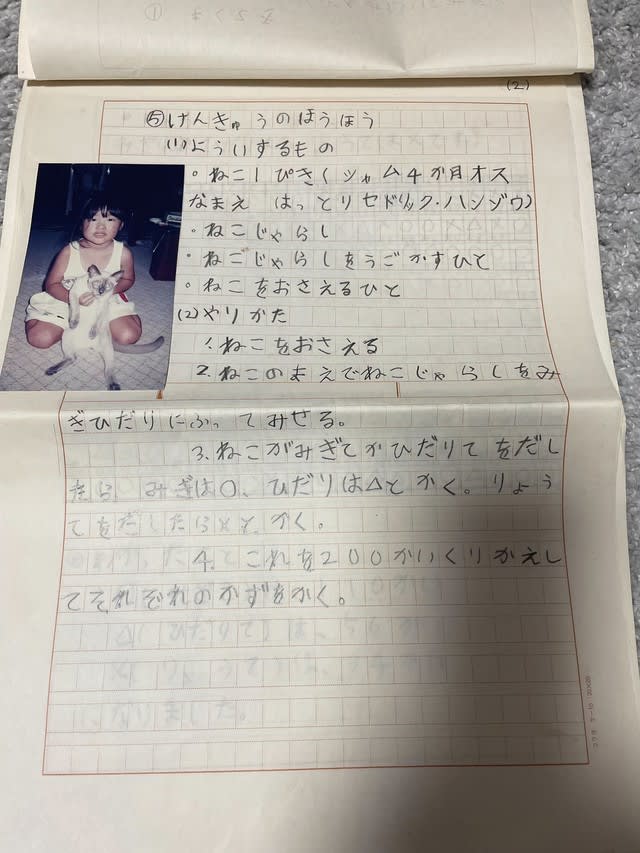 (2)
⑤けんきゅうのほうほう
(1)よういするもの
。ねこ1ぴき(シャム4か月オス
なまえ はっとりセドリック・ハンゾウ)
。ねこじゃらし
。ねこじゃらしをうごかすひと
。ねこをおさえるひと
(2)やりかた
1.ねこをおさえる
2.ねこのまえでねこじゃらしをみ
ぎひだりにふってみせる。
3.ねこがみぎてかひだりてをだし
たら みぎは○、ひだりは△とかく。りょう
てをだしたら×とかく。
4.これを200かいくりかえし
てそれぞれのかずをかく。
なりました。